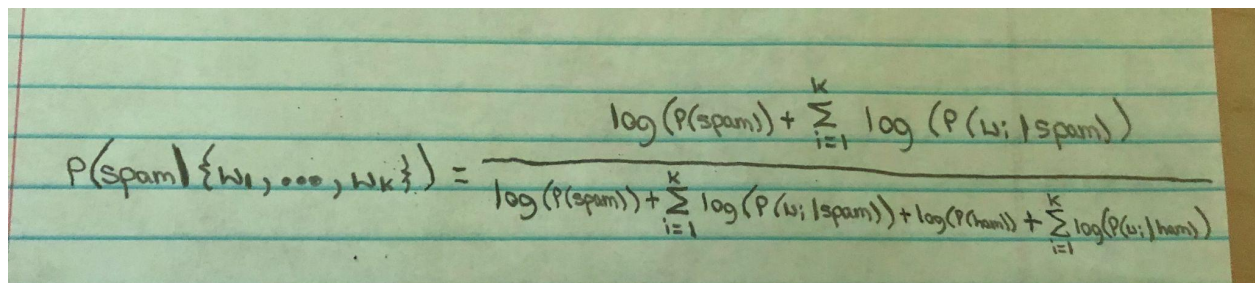 P(spam | {w₁, ..., wₖ}) = \frac{\log(P(spam)) + \sum_{i=1}^{K} \log(P(w_i | spam))}{\log(P(spam)) + \sum_{i=1}^{K} \log(P(w_i | spam)) + \log(P(ham)) + \sum_{i=1}^{K} \log(P(w_i | ham))}